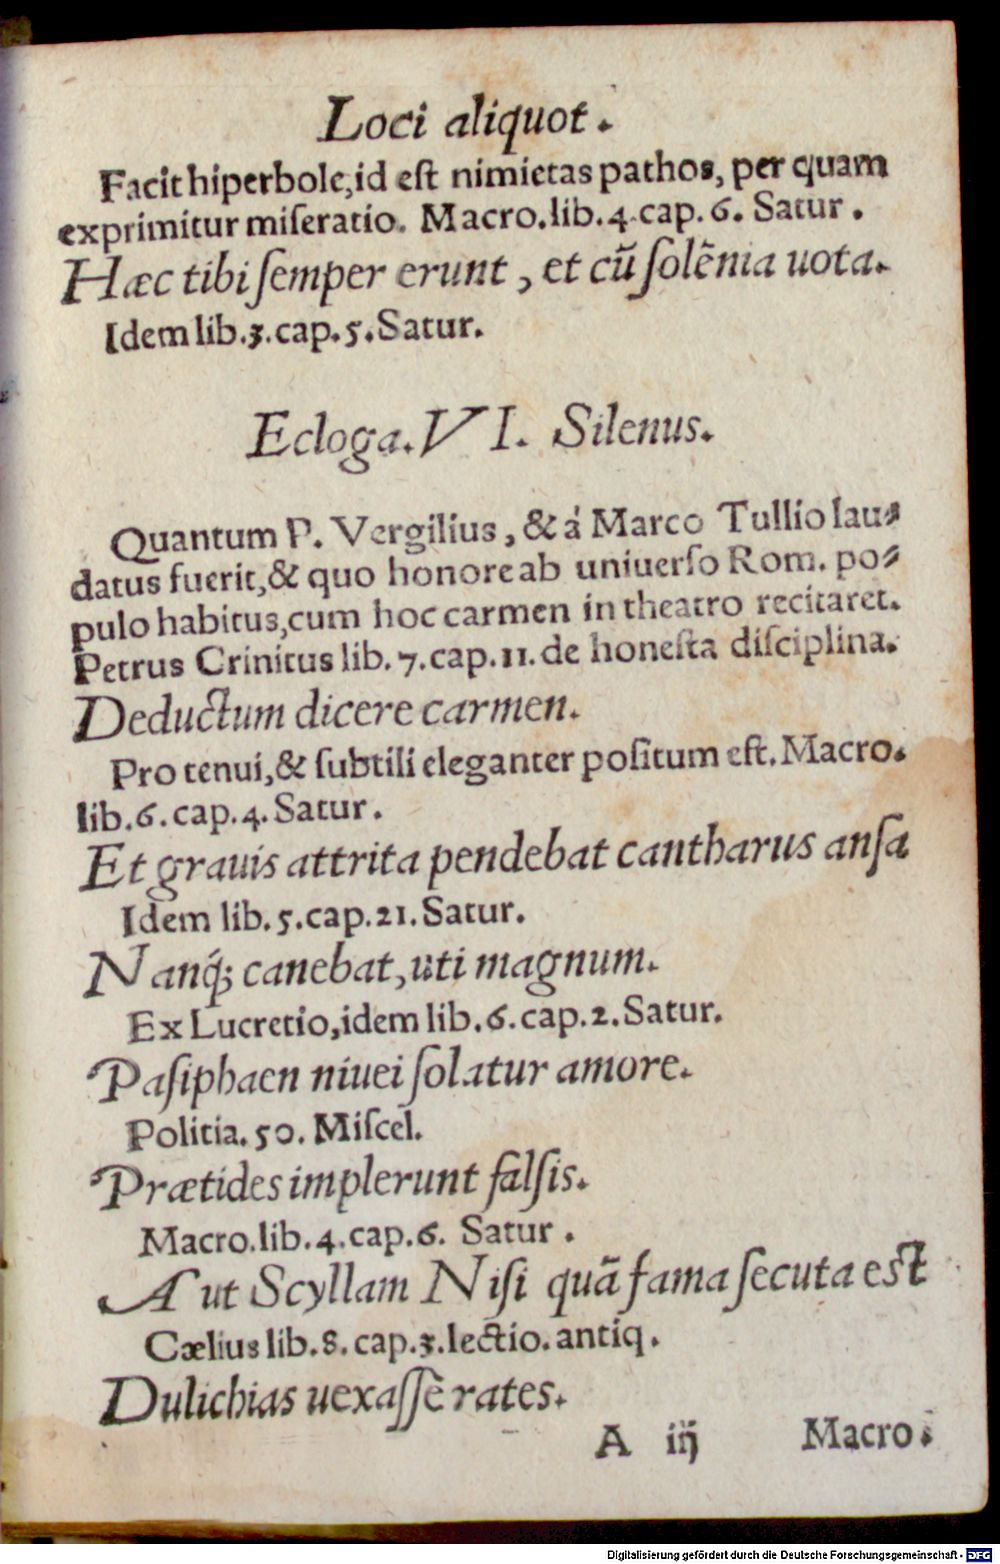 Loci aliquot.
Facit hiperbole, id est nimietas pathos, per quam
exprimitur miſeratio. Macro. lib. 4. cap. 6. Satur.
Hæc tibi ſemper erunt, et cũ ſolẽnia uota.
Idem lib. 3. cap. 5. Satur.
Ecloga. VI. Silenus.
Quantum P. Vergilius, & á Marco Tullio lau⸗
datus fuerit, & quo honore ab uniuerſo Rom. po⸗
pulo habitus, cum hoc carmen in theatro recitaret.
Petrus Crinitus lib. 7. cap. 11. de honeſta diſciplina.
Deductum dicere carmen.
Pro tenui, & ſubtili eleganter poſitum eſt. Macro.
lib. 6. cap. 4. Satur.
Et grauis attrita pendebat cantharus anſa
Idem lib. 5. cap. 21. Satur.
Nanq́; canebat, uti magnum.
Ex Lucretio, idem lib. 6. cap. 2. Satur.
Paſiphaen niuei ſolatur amore.
Politia. 50. Miſcel.
Prætides implerunt falſis.
Macro. lib. 4. cap. 6. Satur.
Aut Scyllam Niſi quã fama ſecuta est
Cælius lib. 8. cap. 3. lectio. antiq.
Dulichias uexaſſẽ rates.
A iij Macro.
Digitalisierung gefördert durch die Deutsche Forschungsgemeinschaft - DFG